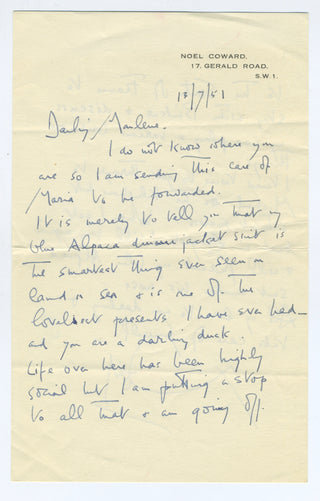 NOEL COWARD.
17, GERALD ROAD,
S.W.1.
13/7/51
Darling Marlene.
I do not know where you
are so I am sending this care of
Maria to be forwarded.
It is merely to tell you that my
blue Alpaca dinner jacket suit is
the smartest thing ever seen on
land or sea & is one of the
loveliest presents I have ever had—
and you are a darling duck.
Life over here has been highly
social but I am putting a stop
to all that & am going off.